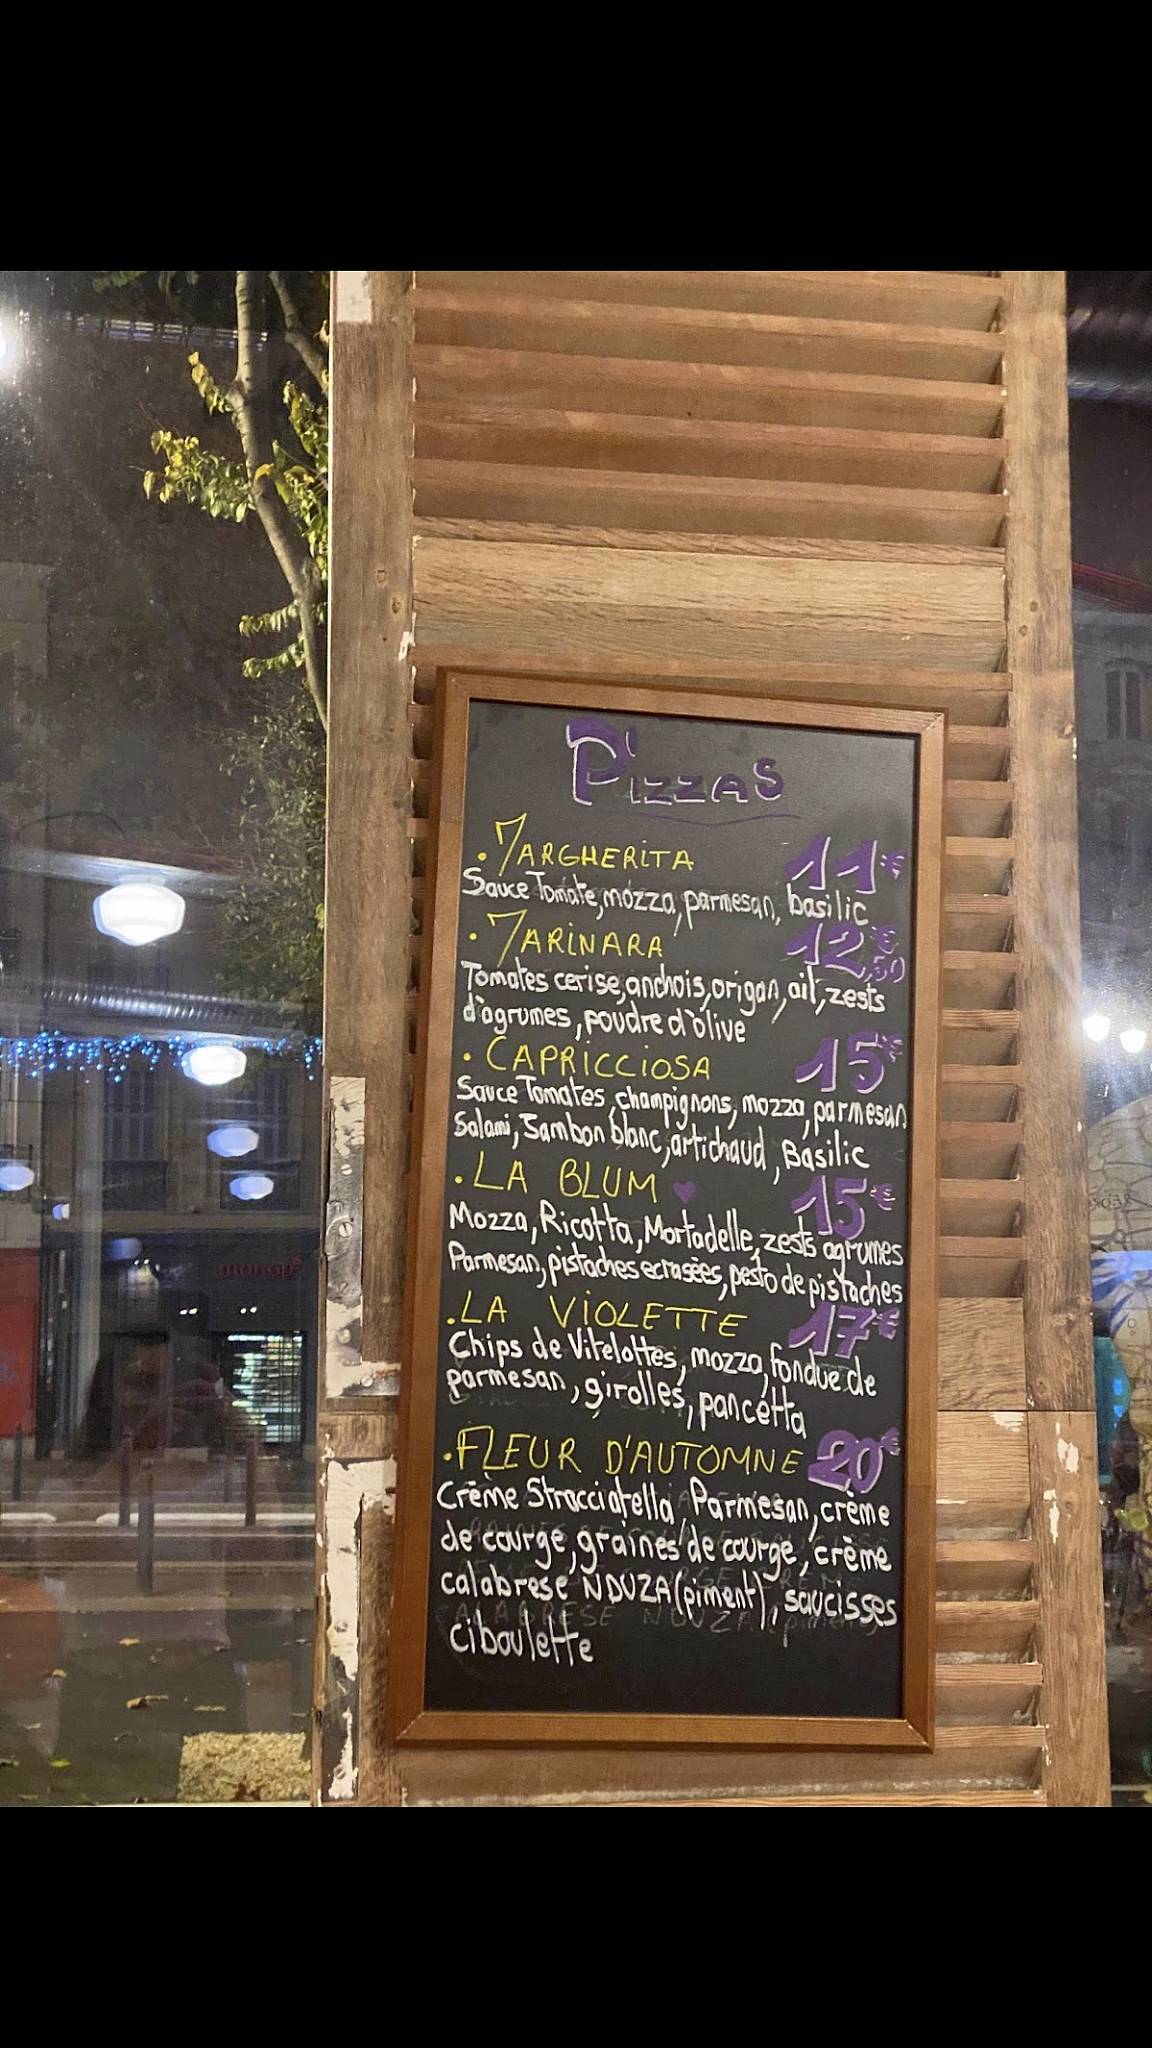 Pizzas
• MARGHERITA 11€
Sauce Tomate, mozza, parmesan, basilic
• MARINARA 12,50€
Tomates cerise, anchois, origan, ail, zests
d'agrumes, poudre d'olive
• CAPRICCIOSA 15€
Sauce Tomates, champignons, mozza, parmesan
Salami, Jambon blanc, artichaud, Basilic
• LA BLUM ♥ 15€
Mozza, Ricotta, Mortadelle, zests agrumes
Parmesan, pistaches ecrasées, pesto de pistaches
• LA VIOLETTE 17€
Chips de Vitelottes, mozza, fondue de
parmesan, girolles, pancetta
• FLEUR D'AUTOMNE 20€
Crème Stracciatella, Parmesan, crème
de courge, graines de courge, crème
calabrese NDUZA (piment), saucisses
ciboulette